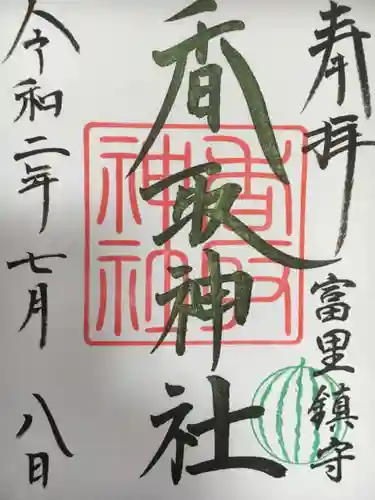 奉拝
富里鎮守
香取神社
香取神社
令和二年七月八日